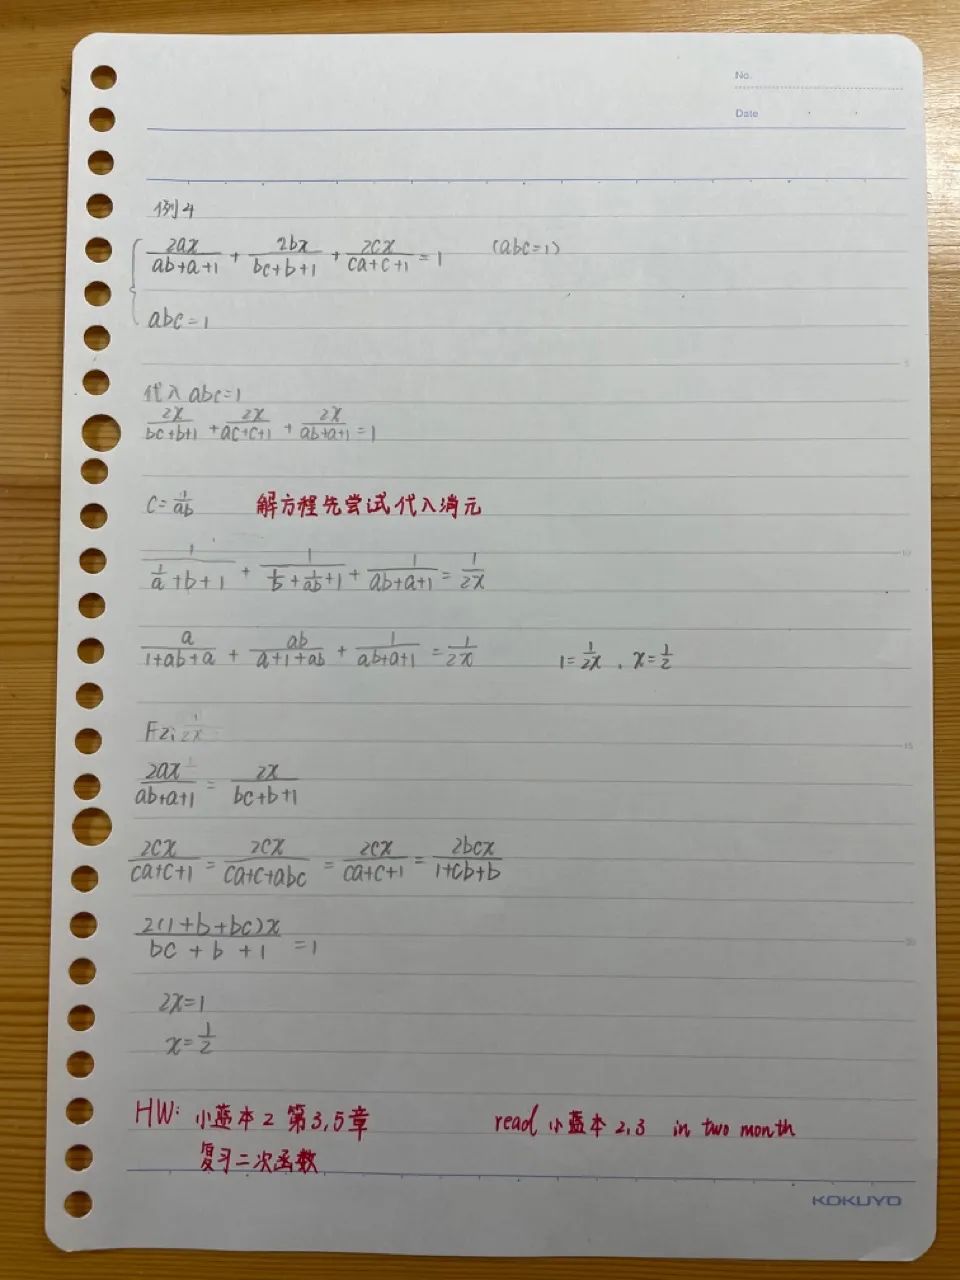 No.
Date
例4
2ax/(ab+a+1) + 2bx/(bc+b+1) + 2cx/(ca+c+1) = 1 (abc=1)
abc=1
5
代入 abc=1
2x/(bc+b+1) + 2x/(ac+c+1) + 2x/(ab+a+1) = 1
C = 1/ab 解方程先尝试代入消元
10
1/(1/a+b+1) + 1/(1/b+1/ab+1) + 1/(ab+a+1) = 1/2x
a/(1+ab+a) + ab/(a+1+ab) + 1/(ab+a+1) = 1/2x 1=1/2x , x=1/2
15
2ax/(ab+a+1) = 2x/(bc+b+1)
2cx/(ca+c+1) = 2cx/(ca+c+abc) = 2cx/(ca+c+1) = 2bcx/(1+cb+b)
20
2(1+b+bc)x/(bc+b+1) = 1
2x=1
x=1/2
HW: 小蓝本2 第3,5章 read 小蓝本2,3 in two month
复习二次函数
KOKUYO